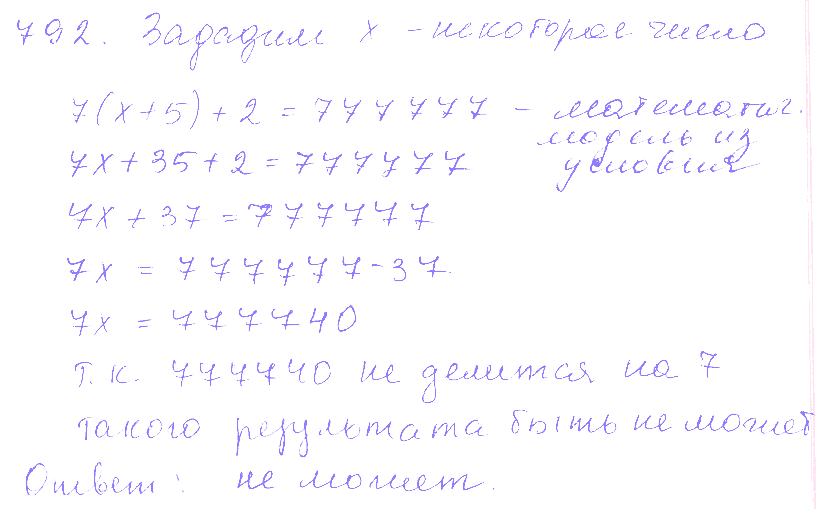 792. Зададим x - некоторое число
7(x+5)+2=777777 - математич.
модель из
7x+35+2=777777 условия
7x+37=777777
7x=777777-37
7x=777740
т.к. 777740 не делится на 7
такого результата быть не может
Ответ: не может.